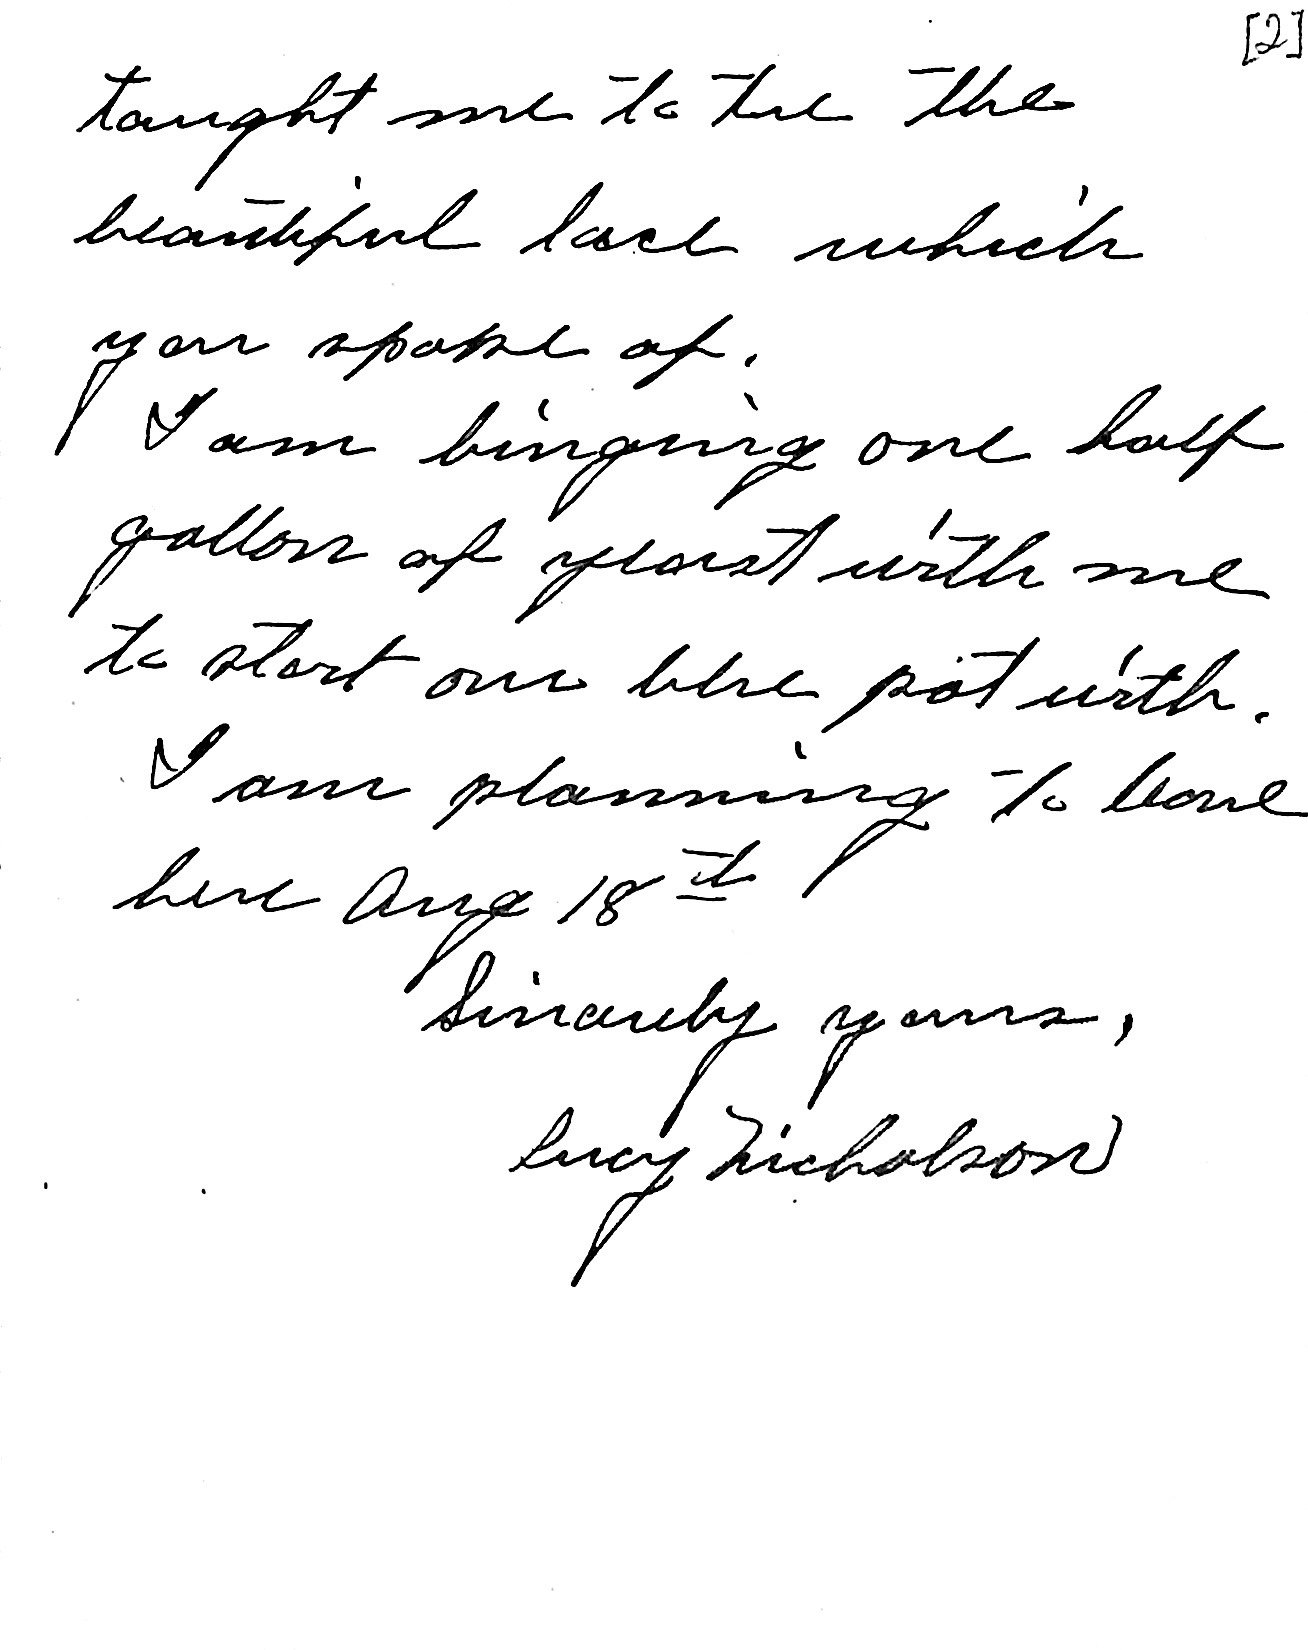 [2]
taught me to tie the
beautiful lace which
you spoke of.
I am binging one half
gallon of yeast with me
to start our blue pot with.
I am planning to leave
here Aug 18th
Sincerely yours,
Lucy Nicholson